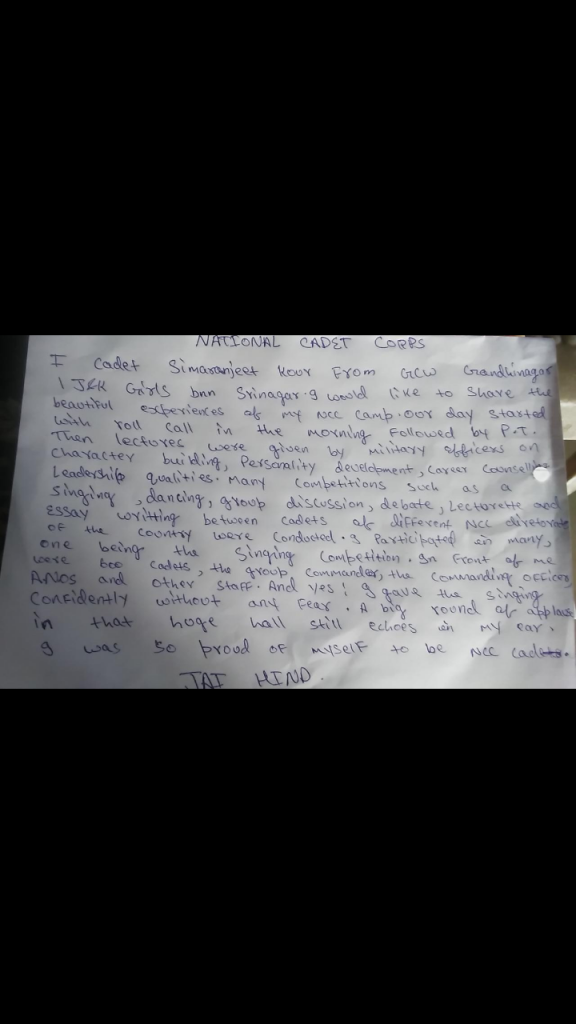 NATIONAL CADET CORPS
I Cadet Simaranjeet Kour From GCW Gandhinagar
1 J&K Girls bnn Srinagar. I would like to share the
beautiful experiences of my NCC camp. Our day started
with roll call in the morning Followed by P.T.
Then lectures were given by military officers on
Character building, Personality development, Career
Leadership qualities. Many Competitions such as a
Singing, dancing, group discussion, debate, Lecturette and
Essay writting between cadets of different NCC
of the country were Conducted. I Participated in many,
one being the Singing Competition. In Front of me
were 600 cadets, the group Commander, the Commanding officer,
ANOs and other staff. And yes! I gave the singing
Confidently without any Fear. A big round of
in that huge hall still echoes in my ear.
I was so proud of myself to be NCC
JAI HIND.